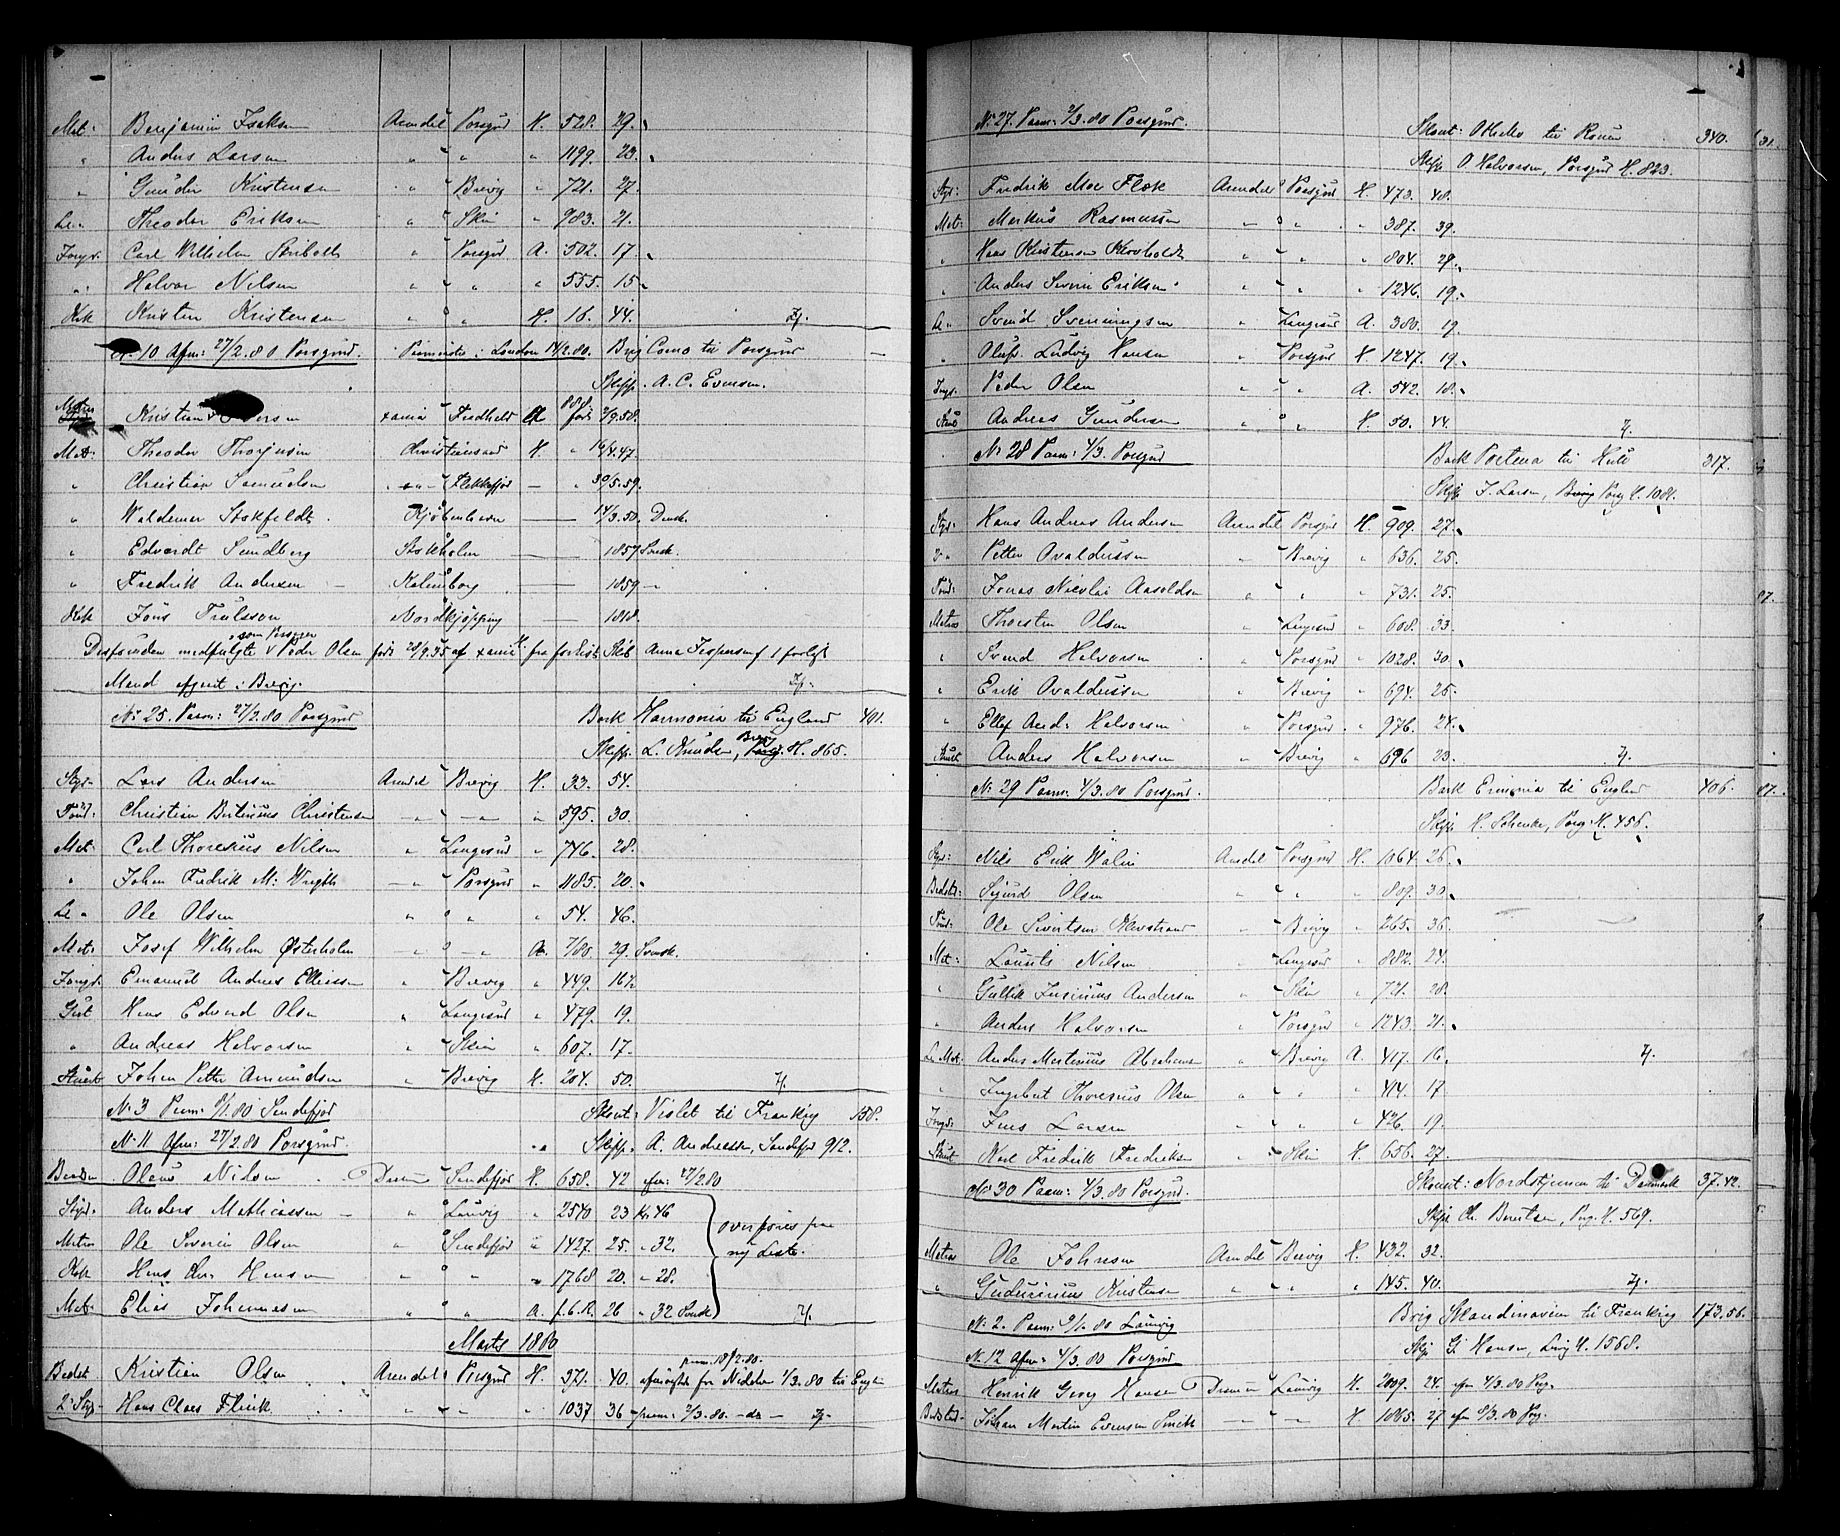 Mat: Benjamin Isaksen Arendal Porsgrd H. 528. 29.
" Anders Larsen " " " 1199. 23.
" Gunder Kristensen " Brevig " 721. 27.
Le " Theodor Eriksen " Skien " 983. 21.
Jungs. Carl Wilhelm " Porsgrd A. 502. 17.
" Halvor Nilsen " " " 555. 15.
Kok Kristen Kristensen " " H. 16. 44.
No 10 Afm: 27/2.80 Porsgrund. Paamønstr. i London 14/2.80. Brig Como til Porsgrund
Skipp. A. C. Evensen.
Matros Kristian Fredhald A 888 født 2/9.58.
Mat. Theodor Thorjusen Christiansand H. " 16/4.47.
" Christian Samuelsen Flekkefjord — " 30/5.59.
" Waldemar Stokfeldt Kjøbenhavn — 14/3.50. Dansk.
" Edvardt Sundberg Stokholm — 1857 Svensk.
" Fredrik Andersen Kalundborg — 1859 —
Kok Jøns Trulsson Nordkjøpping — 1818.
Desforuden medfulgte som Passager Peder Olsen født 28/9.35 af xania fra forlist Skib Anna Jespersen 1 forlist
Mand afgivet i Brevig.
No 25. Paam: 27/2.80 Porsgrund Bark Harmonia til England 401.
Skipp. L. Knudsen, Brevig H. 865.
Styr. Lars Andersen Arendal Brevig H. 33. 54.
Tømd. Christian Bertinius Christensen " " " 595. 30.
Mat. Carl Thorenius Nilsen " Langesund " 746. 28.
" Johan Fredrik M: Wrigth " Porsgrd " 1185. 20.
Le " Ole Olsen " " " 54. 46.
Mat. Josef Wilhelm Østerholm " " A. 7/80 29. Svensk.
Jungs. Emanuel Andreas Elliassen " Brevig " 449. 16½
Gut Hans Edvard Olsen " Langesund " 479. 19.
" Andreas Halvorsen " Skien " 607. 17.
Stuert Johan Petter Amundsen " Brevig H. 204. 50.
No 3 Paam: 8/1.80 Sandefjord Skont: Violet til Frankrig 158.
No 11 Afm: 27/2.80 Porsgrund. Skipp. A. Andreassen, Sandefjord 912.
Bedstm. Olaus Nilsen Dram Sandefjord H. 658. 42 afm: 27/2.80
Styrd. Anders Mathiassen " Laurvig " 2540 23 Kr 46
Matros Ole Severin Olsen " Sandefjord " 1427. 25. " 32.
Kok Hans Chr. Hansen " " " 1768 20. " 28.
Mat. Elias Johannesen " " A. f.6.R. 26 " 32 Svensk
overføres paa
ny Liste.
Marts 1880
paam. 18/2.80.
Bedst. Kristian Olsen Arendal Porsgrd H. 371. 40. afmønstr. fra Nidelven 1/3.80 til England
2. Styr. Hans Claes Flink " " " 1037 36 paam: 2/3.80. — do —
No 27. Paam: 2/3.80 Porsgrund.
Skont: Othello til Rouen 340.
Skip O. Halvorsen, Porsgrd H. 823.
Styr: Fredrik Moe Flook Arendal Porsgrund H. 473. 48.
Mat: Markus Rasmussen " " " 387. 39.
" Hans Kristensen Klovholdt " " " 804. 29.
" Anders Severin Eriksen " " " 1246. 19.
Le " Svend Svenningsen " Langesund A. 380. 19.
" Oluf Ludvig Hansen " Porsgrd H 1247. 19.
Jngs. Peder Olsen " " A. 542. 18.
Stuert Andreas Gundersen " " H. 50. 44.
No 28 Paam: 4/3. Porsgrd
Bark Portena til Hull 317.
Skip J. Larsen, Brevig Porsg H. 1081.
Styr: Hans Andreas Andersen Arendal Porsgrund H. 909. 27.
2. " Petter Ovaldussen " Brevig " 636. 25.
Tømd. Jonas Nicolai Aasoldsen " " " 731. 25.
Matros Thorsten Olsen " Langesund " 608. 33.
" Svend Halvorsen " Porsgrd " 1028. 30.
" Erik Ovaldussen " Brevig " 694. 25.
" Ellef And: Halvorsen " Porsgrund. " 976. 24.
Stuert Anders Halvorsen " Brevig " 696 23.
No 29 Paam: 4/3.80 Porsgrund.
Bark Ermonia til England 406.
Skip H. Schenke, Porsg H. 456.
Styr: Nils Erik Walin Arendal Porsgrund H. 1064. 26.
Bedstm: Sigurd Olsen " " " 809. 30.
Tømd. Ole Sivertsen Klovstrand " Brevig " 265. 36.
Mat: Laurits Nilsen " Langesund " 882. 24.
" Gullik Jusinius Andersen " Skien " 721. 28.
" Anders Halvorsen " Porsgrd " 1243. 21.
Le Mat. Anders Martinius Abrahamsen " Brevig A. 417. 16.
" Ingebret Thorenius Olsen " " " 414. 17
Jngs. Jens Larsen " " " 426. 19.
Stuert Karl Fredrik Fredriksen " Skien H. 656. 27
No 30 Paam: 4/3.80 Porsgrund.
Skonnt: Nordstjernen til Danmark 37.42.
Skip Chr. Berntsen, Porsg. H. 569.
Matros Ole Johnsen Arendal Brevig H. 432. 32.
" Gudmunius Kristensen " " " 145. 40.
No 2. Paam: 9/1.80 Laurvig
Brig Skandinavien til Frankrig 173.56.
No 12 Afm: 4/3.80 Porsgrund
Skip G. Hansen, Laurvig H. 1568.
Matros Henrik Georg Hansen Drammen Laurvig H. 2009. 24. afm 4/3.80 Porsg.
Bedstmd. Johan Martin Evensen " " H. 1065. 27 afm 9/3.80 Porsg.